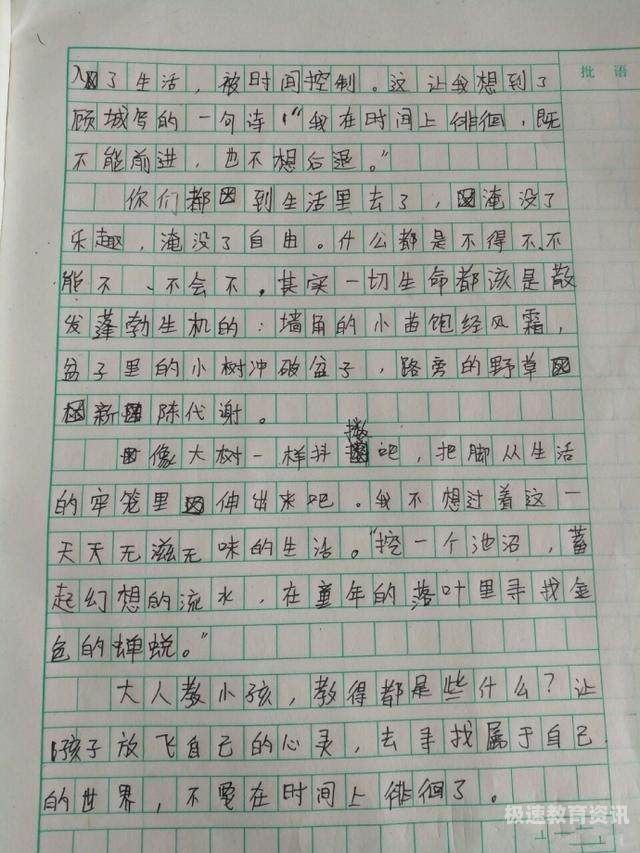 批语
入了生活，被时间控制。这让我想到了
顾城写的一句诗：“我在时间上徘徊，既
不能前进，也不想后退。”
你们都到生活里去了，淹没了
乐趣，淹没了自由。什么都是不得不、不
能不、不会不，其实一切生命都该是散
发蓬勃生机的：墙角的小苗饱经风霜，
盆子里的小树冲破盆子，路旁的野草
新陈代谢。
像大树一样抖擞吧，把脚从生活
的牢笼里伸出来吧。我不想过着这一
天天无滋无味的生活。“挖一个池沼，蓄
起幻想的流水，在童年的落叶里寻找金
色的蝉蜕。”
大人教小孩，教得都是些什么？让
孩子放飞自己的心灵，去寻找属于自己
的世界，不要在时间上徘徊了。
极速教育资讯